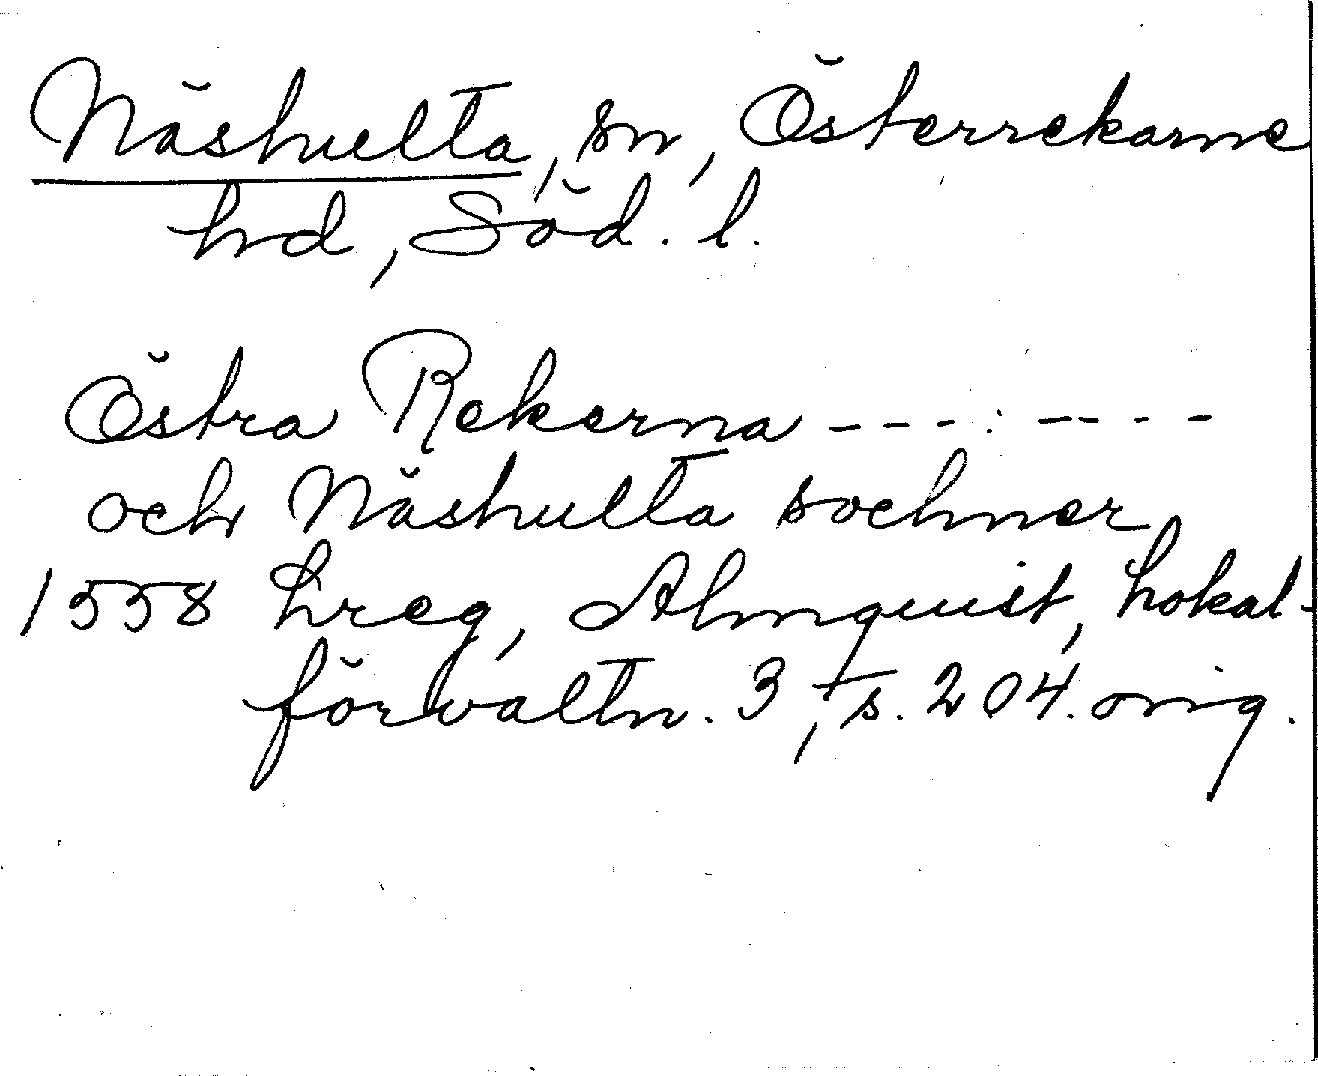 Näshulta, sn, Österrekarne
hd, Söd. l.
Östra Rekerna - - - . - - - -
och Näshulta sochner
1558 Lreg, Almquist, Lokal-
förvaltn. 3, s. 204. orig.